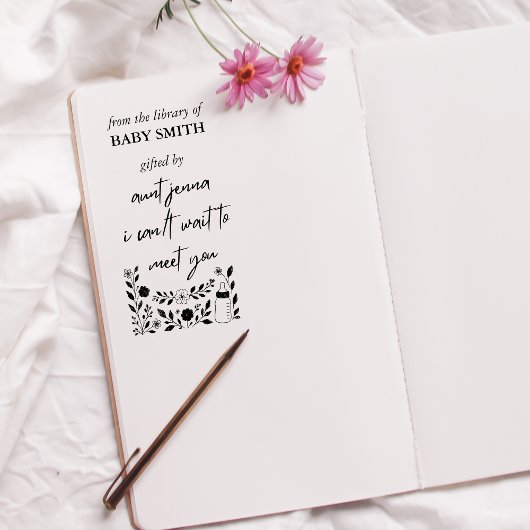 from the library of
BABY SMITH
gifted by
aunt jenna
i can't wait to
meet you